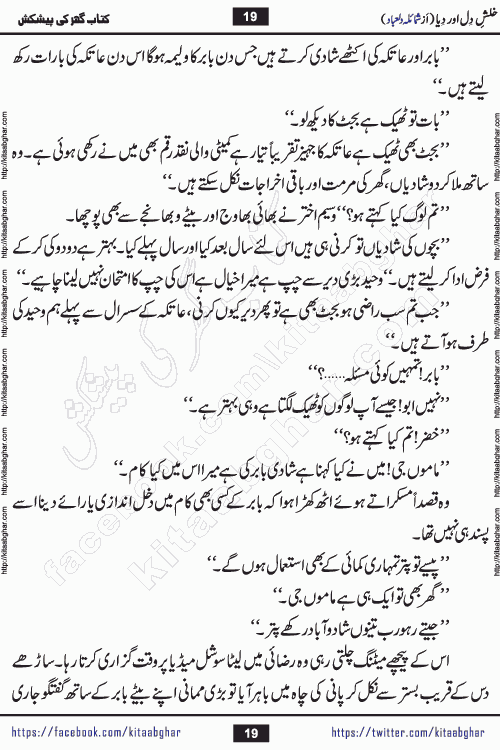 خلشِ دِل اور دِیا (از شمائلہ دلعباد)
19
کتاب گھر کی پیشکش
’’بابر اور عاتکہ کی اکٹھے شادی کرتے ہیں جس دن بابر کا ولیمہ ہوگا اس دن عاتکہ کی بارات رکھ
لیتے ہیں۔‘‘
’’بات تو ٹھیک ہے بجٹ کا دیکھ لو۔‘‘
’’بجٹ بھی ٹھیک ہے عاتکہ کا جہیز تقریباً تیار ہے کمیٹی والی نقد رقم بھی میں نے رکھی ہوئی ہے۔ وہ
ساتھ ملا کر دو شادیاں، گھر کی مرمت اور باقی اخراجات نکل سکتے ہیں۔‘‘
’’تم لوگ کیا کہتے ہو؟‘‘ وسیم اختر نے بھائی بھاوج اور بیٹے و بھانجے سے بھی پوچھا۔
’’بچوں کی شادیاں تو کرنی ہی ہیں اس لئے سال بعد کیا اور سال پہلے کیا۔ بہتر ہے دو دو کی کر کے
فرض ادا کر لیتے ہیں۔‘‘ وحید بڑی دیر سے چپ ہے میرا خیال ہے اس کی چپ کا امتحان نہیں لینا چاہیے۔‘‘
’’جب تم سب راضی ہو بجٹ بھی ہے تو پھر دیر کیوں کرنی، عاتکہ کے سسرال سے پہلے ہم وحید کی
طرف ہو آتے ہیں۔‘‘
’’بابر! تمہیں کوئی مسئلہ......؟‘‘
’’نہیں ابو! جیسے آپ لوگوں کو ٹھیک لگتا ہے وہی بہتر ہے۔‘‘
’’خضر! تم کیا کہتے ہو؟‘‘
’’ماموں جی! میں نے کیا کہنا ہے شادی بابر کی ہے میرا اس میں کیا کام۔‘‘
وہ قصداً مسکراتے ہوئے اٹھ کھڑا ہوا کہ بابر کے کسی بھی کام میں دخل اندازی یا رائے دینا اسے
پسند ہی نہیں تھا۔
’’پیسے تو پتر تمہاری کمائی کے بھی استعمال ہوں گے۔‘‘
’’گھر بھی تو ایک ہی ہے ماموں جی۔‘‘
’’جیتے رہو رب تینوں شاد و آباد رکھے پتر۔‘‘
اس کے پیچھے میٹنگ چلتی رہی وہ رضائی میں لیٹا سوشل میڈیا پر وقت گزاری کرتا رہا۔ ساڑھے
دس کے قریب بستر سے نکل کر پانی کی چاہ میں باہر آیا تو بڑی ممانی اپنے بیٹے بابر کے ساتھ گفتگو جاری
https://facebook.com/kitaabghar
19
https://twitter.com/kitaabghar
http://kitaabghar.com
facebook.com/kitaabghar
kitaabghar.com
کتاب گھر کی پیشکش